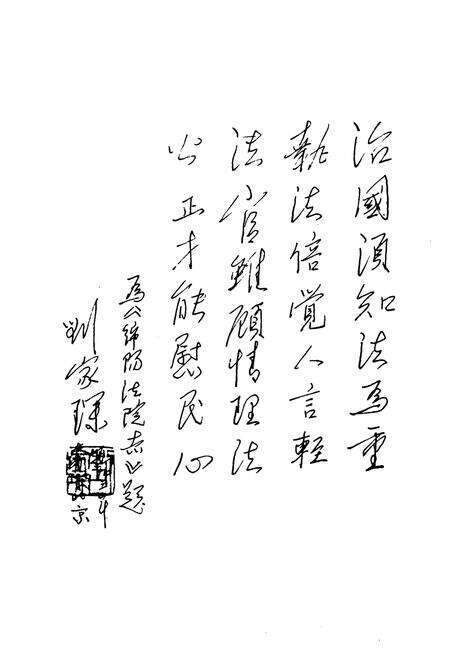 治國須知法為重
執法倍覺人言輕
法官雖顧情理法
公正才能慰民心
為《綿陽法院志》題
劉家琛
京